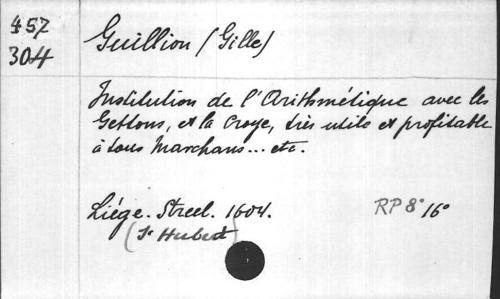 457
304
Guillion (Gille)
Institution de l'Arithmétique avec les
Gettons, et la Croye, très utile et profitable
à tous Marchans... etc.
Liége. Streel. 1604. RP 8° 16°
(St Hubert)